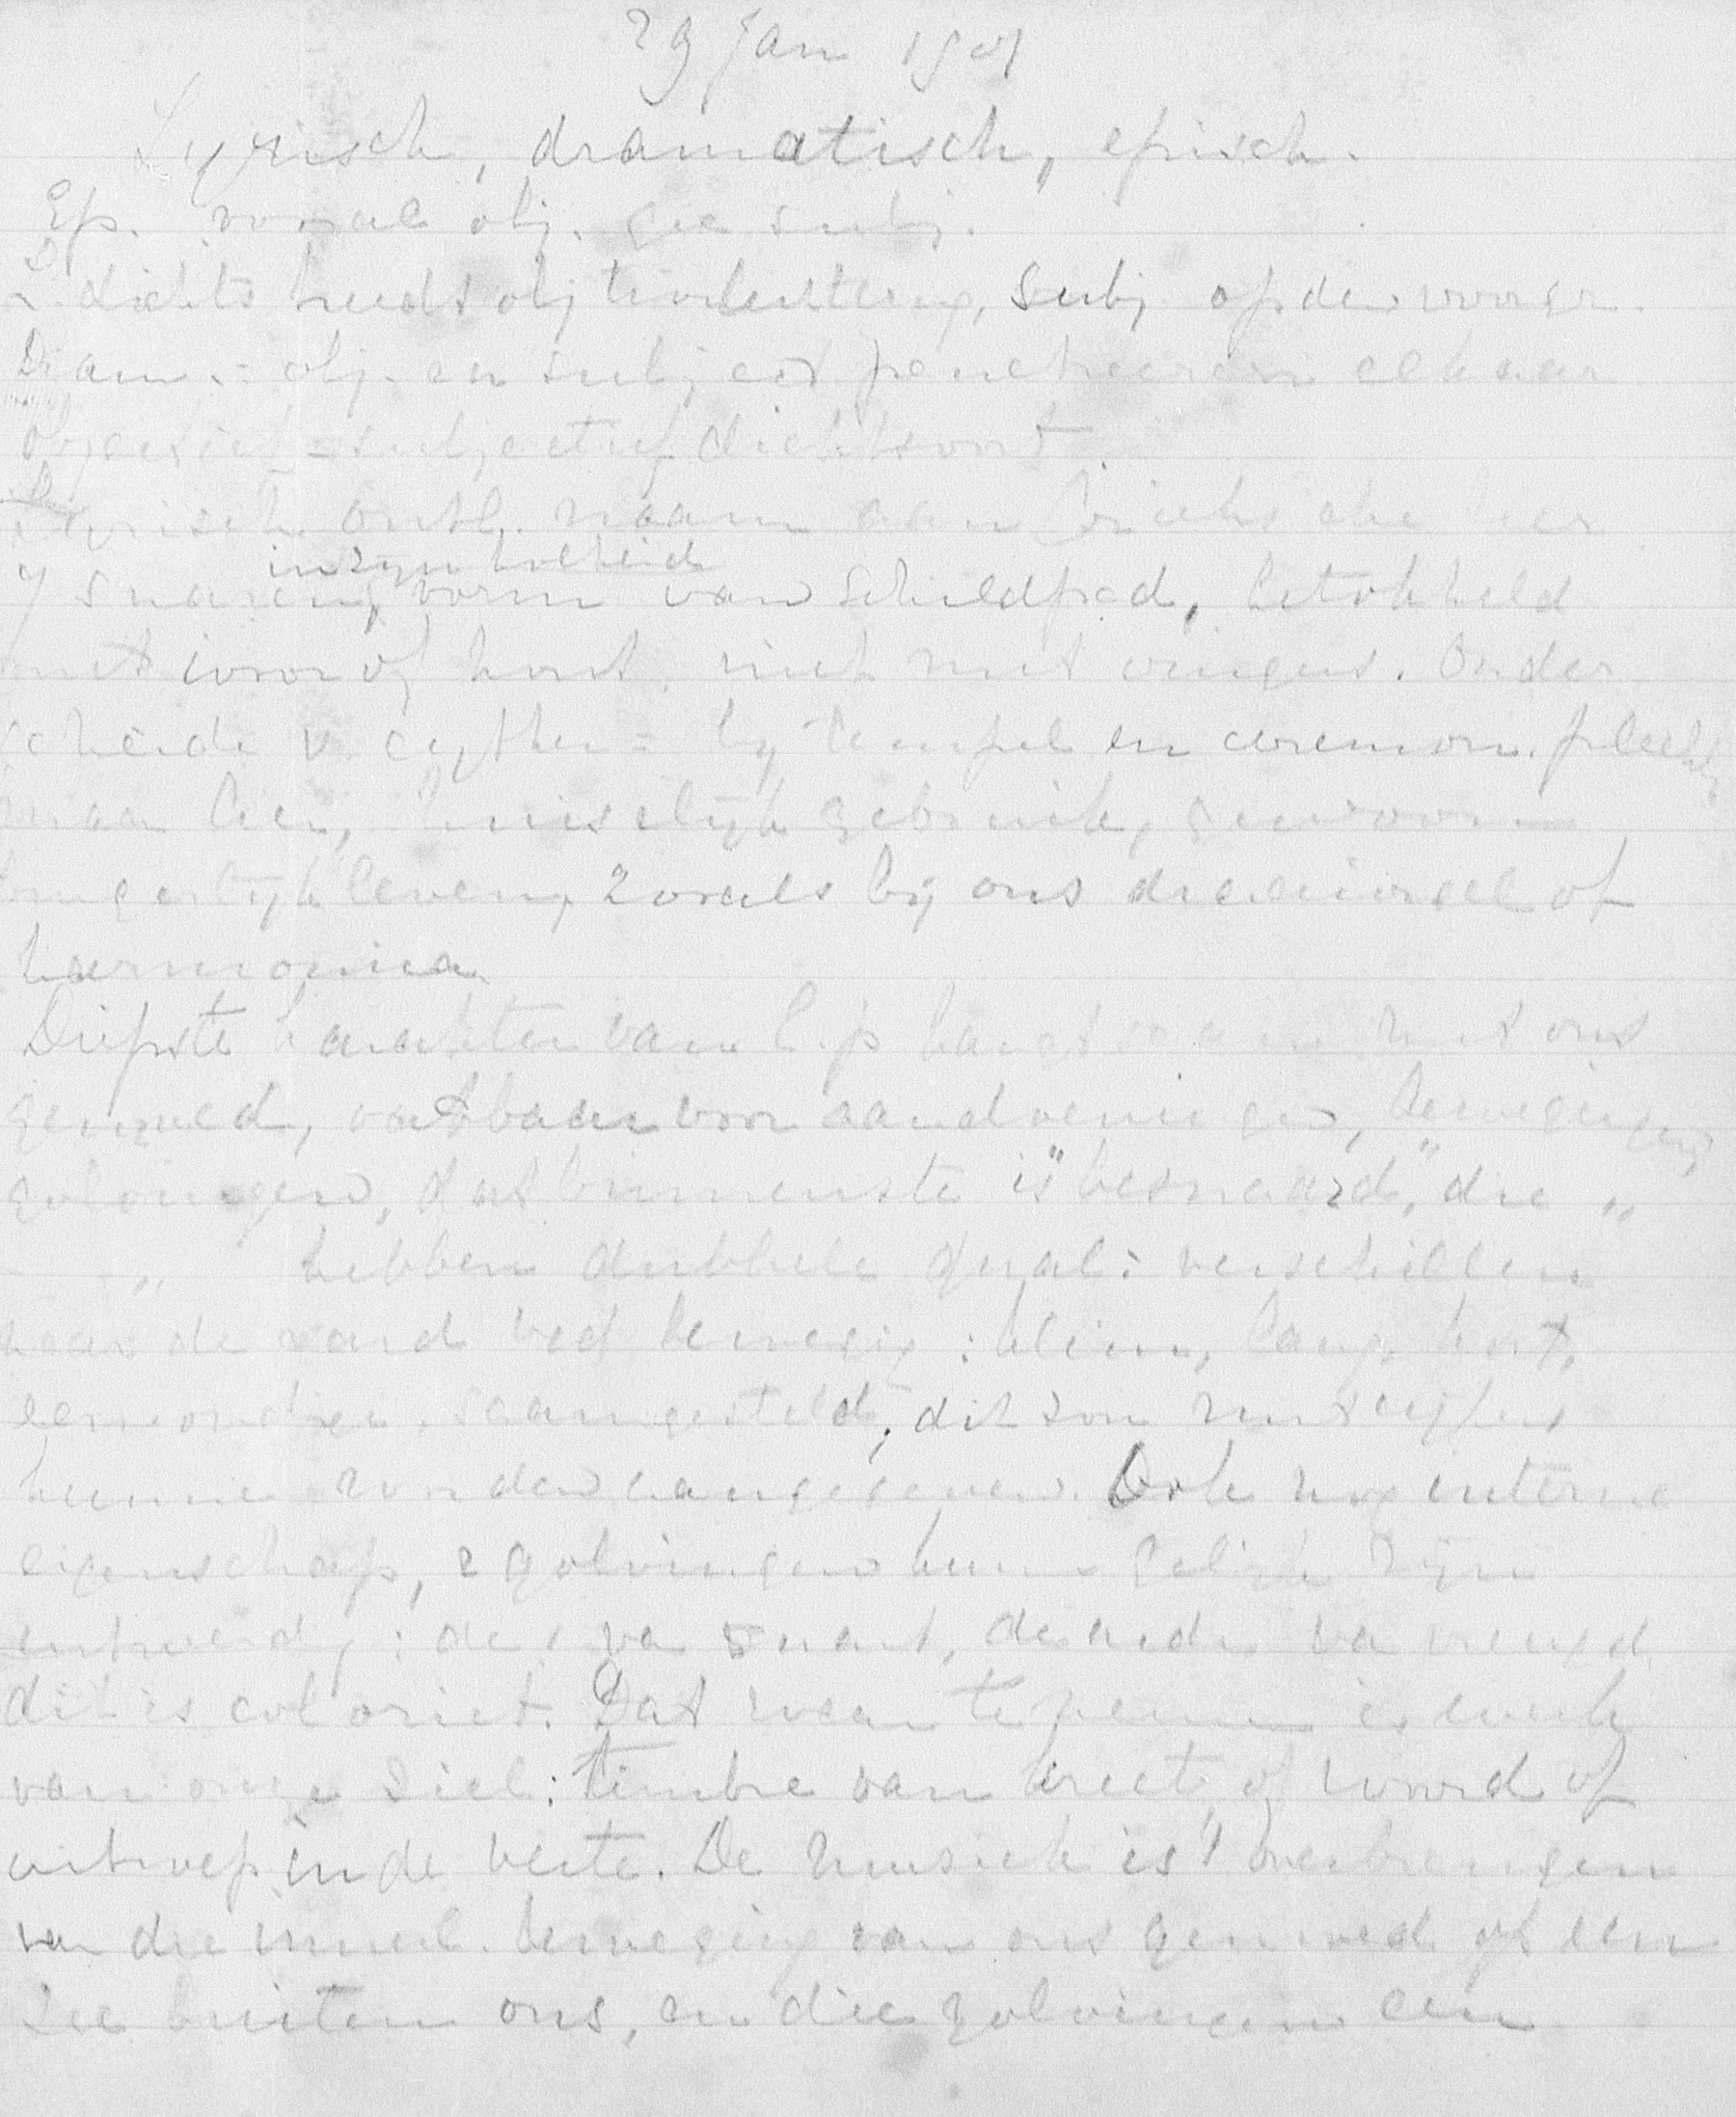 29 Jan 1901
Lyrisch, dramatisch, episch.
Ep. vooral obj. gee subj.
L. dichts heeft obj tenlastering, Subj op den voorgr.
Dram. = obj. en subject penetreeren elkaar
objectief = subjectief dichtsoort
Lyrisch ontl. naam aan Grieksche lier
7 snarig, vorm van schildpad, betokkeld
in zijn holheid
met ivoor of hout, niet met vingers. Onder
scheide v. cyther = bij tempel en ceremon. plecht
maar lier, huiselijk gebruik, gewoon
burgerlijk leven, zooals bij ons draaiorgel of
harmonica.
Diepste karakter van l.p. hangt saam met ons
gemoed, vatbaar voor aandoeningen, bewegingen
golvingen, dat binnenste is "besnaard," die "
" hebben dubbele qual: verschillen
naar de aard vad beweging: klein, lang, kort,
eenvoudig, saamgesteld; dit zou met cijfers
kunnen worden aangegeven. Ook nog interne
eigenschap, 2 golvingen kunn gelijk zijn
uitwendig: de 1 va smart, de ande va vreugd
dit is coloriet. Dat waar te nemen is werk
van onze ziel: timbre van kreet of woord of
uitroep in de verte. De muziek is 't overbrengen
van die innerl. beweging van ons gemoed op een
zee buiten ons, en die golvingen een